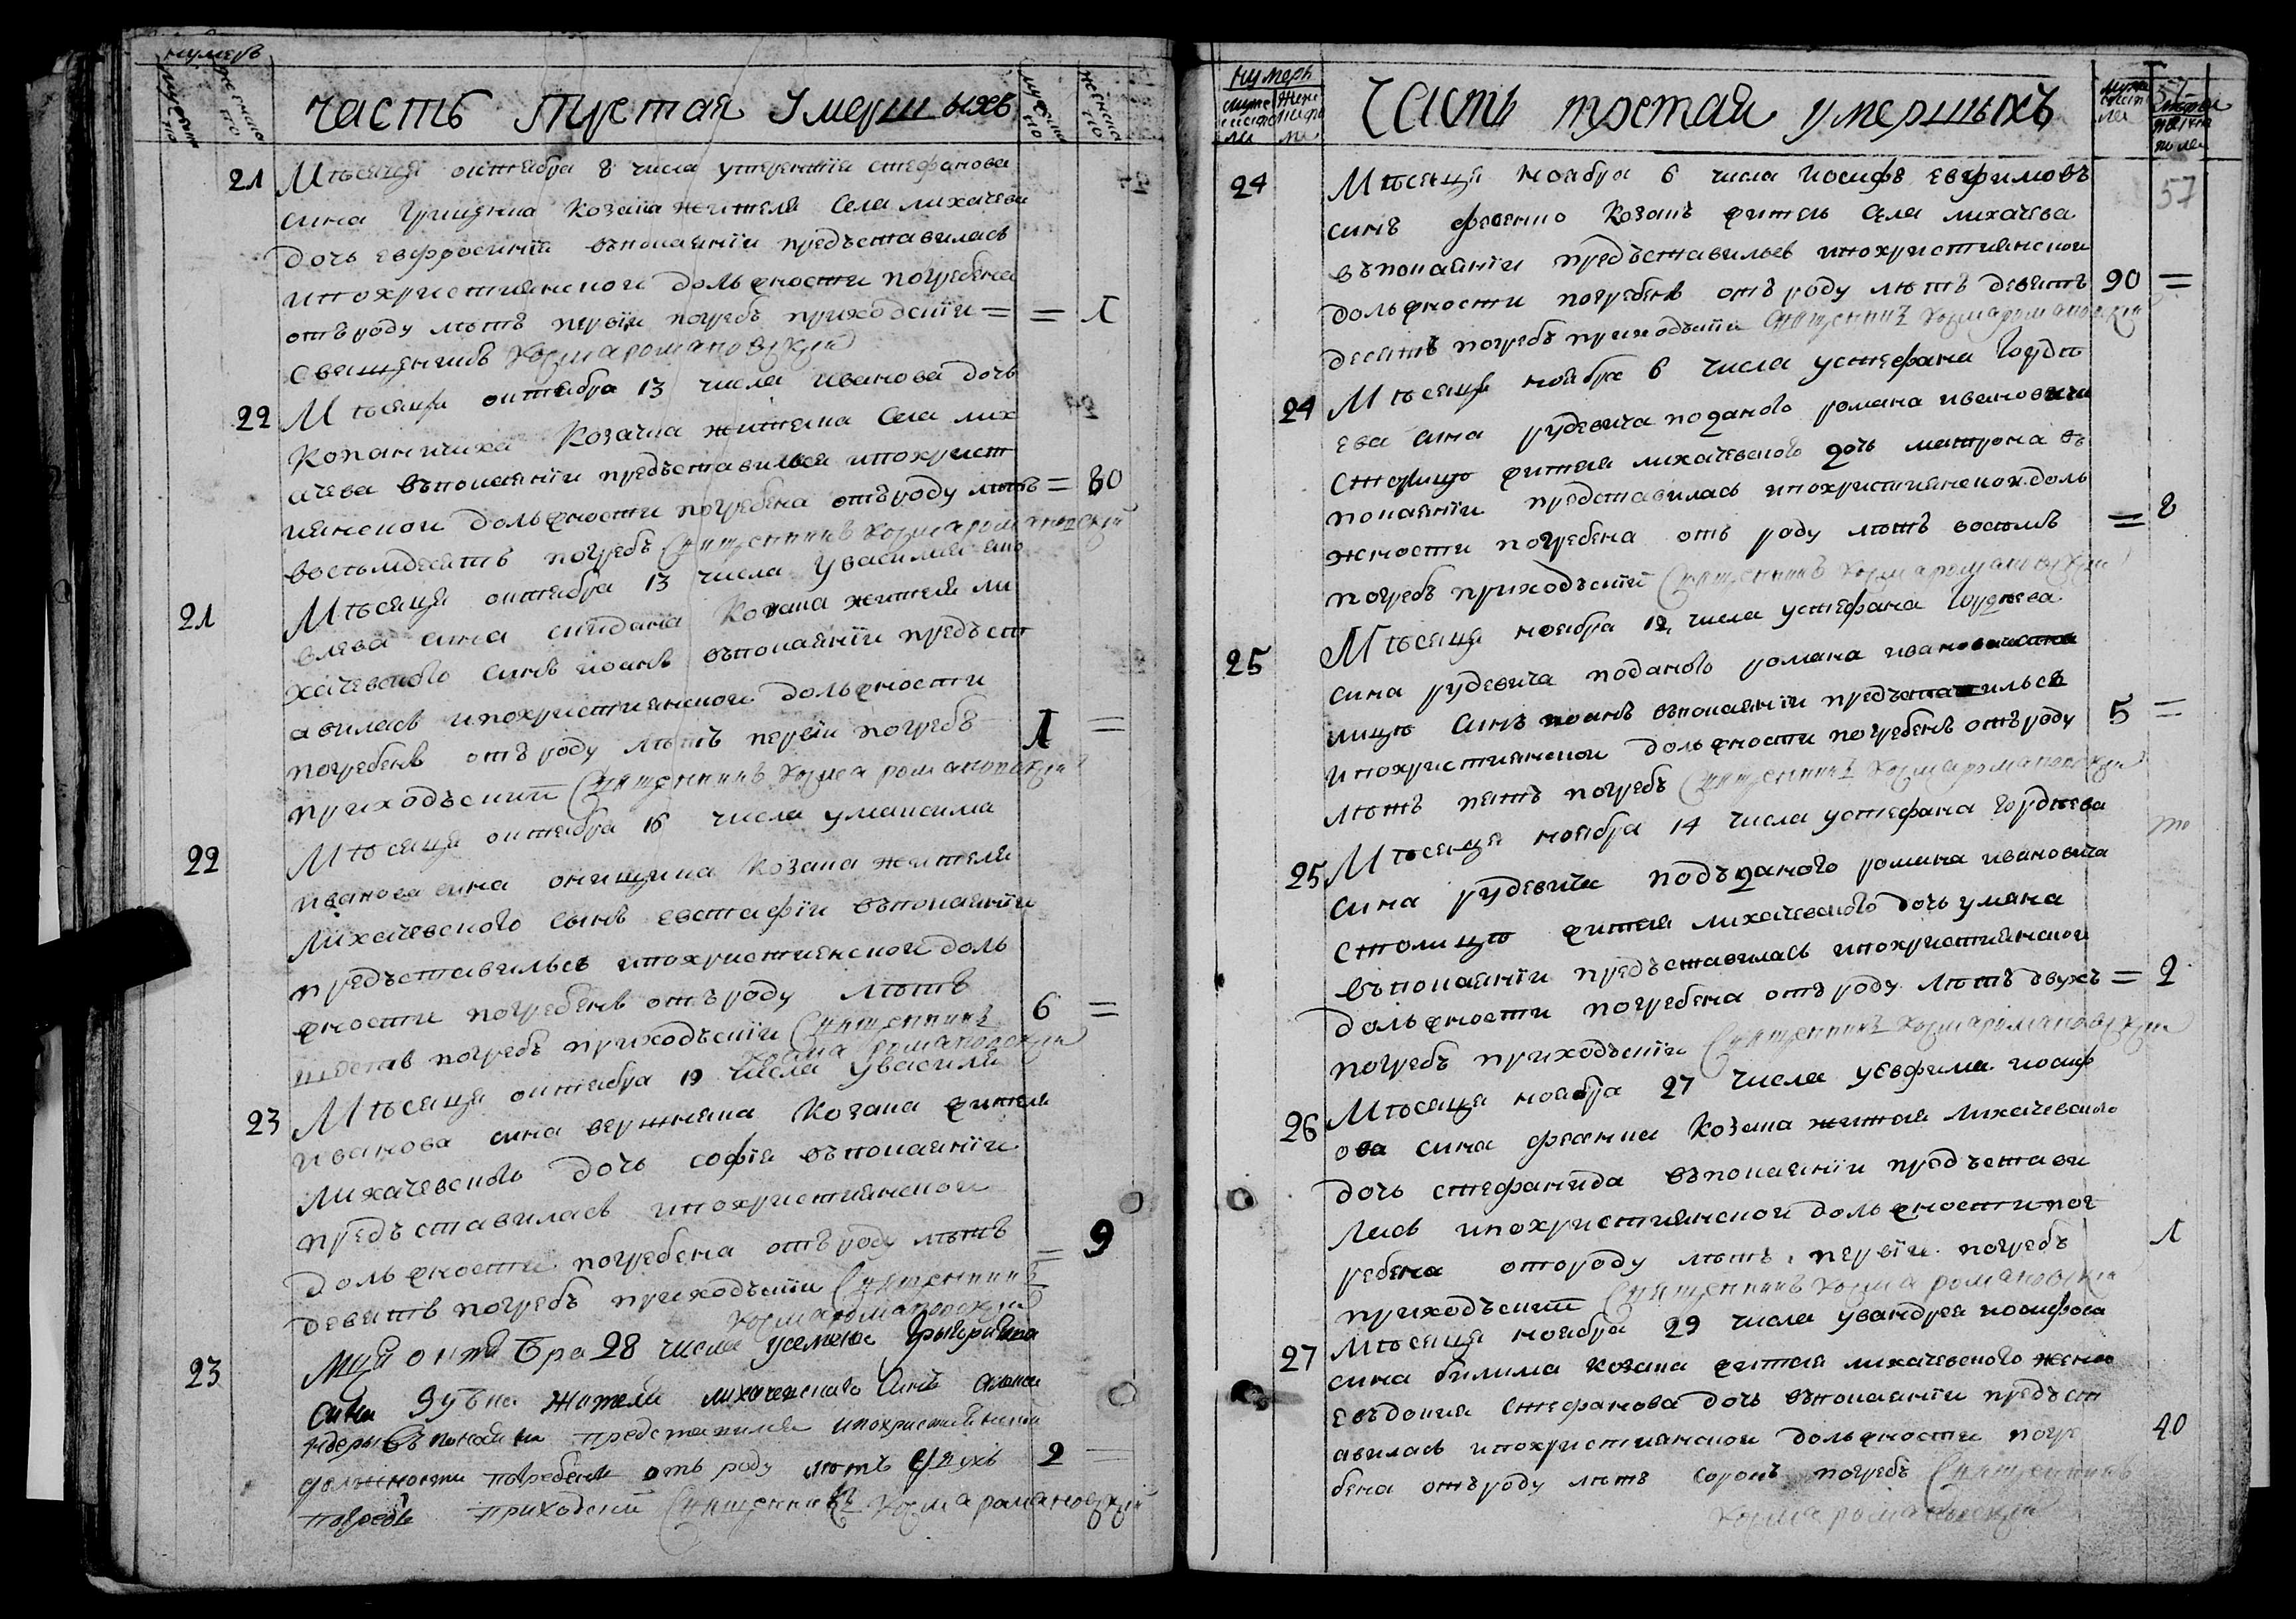 нумеръ
часть третая умершыхъ
21 Мѣсяця октября 8 числа утерентія стефанова
сина Грицена Козака жителя Села лихачева
дочь евфросинїя въпокаянїи предъставилась
ипохристиянской должности погребена
отъ роду лѣтъ первїи погребъ приходскїи = = 1
Священникъ Козма романовскїй
22 Мѣсяця октября 13 числа иванова дочь
Козачка жителка Села лих
ачева въпокаянїи предъставилася ипохрист
иянской должности погребена отъ роду лѣтъ = 80
восѣмдесятъ погребъ Священникъ Козма романовскїй
21 Мѣсяця октября 13 числа у василия яко
влева сина Козака жителя ли
хачевского синъ иоанъ въпокаянїи предъст
авилась ипохристиянской должности
погребенъ отъ роду лѣтъ первїи погребъ 1 =
приходъскїй Священникъ Козма романовскїй
22 Мѣсяця октября 16 числа у максима
иванова сина онищенка Козака жителя
лихачевского сынъ евстафїи въпокаянїи
предъставильсь ипохристиянской дол
жности погребенъ отъ роду лѣтъ
шесть погребъ приходъскїи Священникъ 6 =
Козма романовскїй
23 Мѣсяця октября 19 числа у василя
иванова сина Козака жителя
лихачевского дочь софїя въпокаянїи
предъставилась ипохристиянской
должности погребена отъ роду лѣтъ = 9
девять погребъ приходъскїи Священникъ
Козма романовскїй
23 Мця октябра 28 числа усемена григориева
сина Зубка жителя лихачевского Синъ
въ покаянїи представился ипохристиянской
должности погребенъ отъ роду лѣтъ двухъ 2 =
погребъ приходскїй Священникъ Козма романовскїй
нумеръ
Часть третая умершыхъ
57
24 Мѣсяця Ноября 6 числа Иосифъ евфимовъ
синъ фесенко Козакъ житель Села лихачева
въпокаянїи предъставильсь ипохристиянской
должности погребенъ отъ роду лѣтъ девять 90 =
десятъ погребъ приходъскїи Священникъ Козма романовскїй
24 Мѣсяця ноября 6 числа устефана Гордѣ
ева сина рудевича поданого романа ивановича
Столицѣ жителя лихачевского дочь матрона въ
покаянїи представилась ипохристиянской дол
жности погребена отъ роду лѣтъ восѣмъ = 8
погребъ приходъскїй Священникъ Козма романовскїй
25 Мѣсяця ноября 12 числа устефана Гордѣева
сина рудевича поданого романа
лицѣ Синъ иоанъ въпокаянїи предъставильсь
ипохристиянской должности погребенъ отъ роду 5 =
лѣтъ пять погребъ Священникъ Козма романовскїй
25 Мѣсяця ноября 14 числа устефана Гордѣева
сина рудевича подъданого романа ивановича
столицѣ жителя лихачевского дочь уляна
въпокаянїи предъставилась ипохристиянской
должности погребена отъ роду лѣтъ двухъ = 2
погребъ приходъскїи Священникъ Козма романовскїй
26 Мѣсяця ноября 27 числа уевфима иосиф
ова сина фесенка Козака жителя лихачевского
дочь стефанида въпокаянїи предъстави
лась ипохристиянской должности пог
ребена отъ роду лѣтъ первїи погребъ 1
приходъскїй Священникъ Козма романовскїй
27 Мѣсяця ноября 29 числа уандрея иосифова
сина билима козака жителя лихачевского жена
Евъдокия Стефанова дочь въпокаянїи предъст
авилась ипохристиянской должности погре
бена отъ роду лѣтъ сорокъ погребъ Священникъ 40
Козма романовскїй